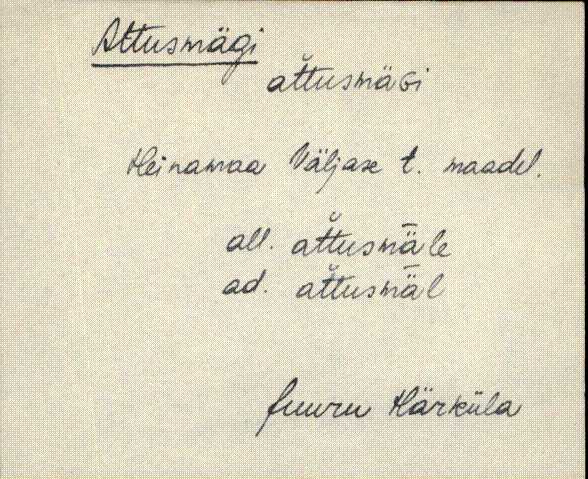 Attusmägi
at̆tusmäGi
Heinamaa Väljase t. maadel.
all. at̆tusmǟle
ad. at̆tusmǟl
Juuru Härküla